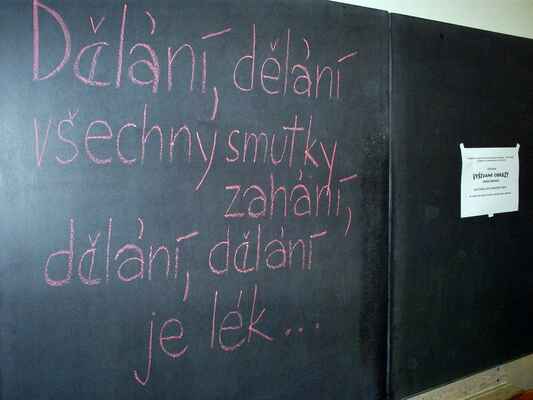 Dělání, dělání
všechny smutky
zahání,
dělání, dělání
je lék...
VYŠÍVANÉ OBRAZY